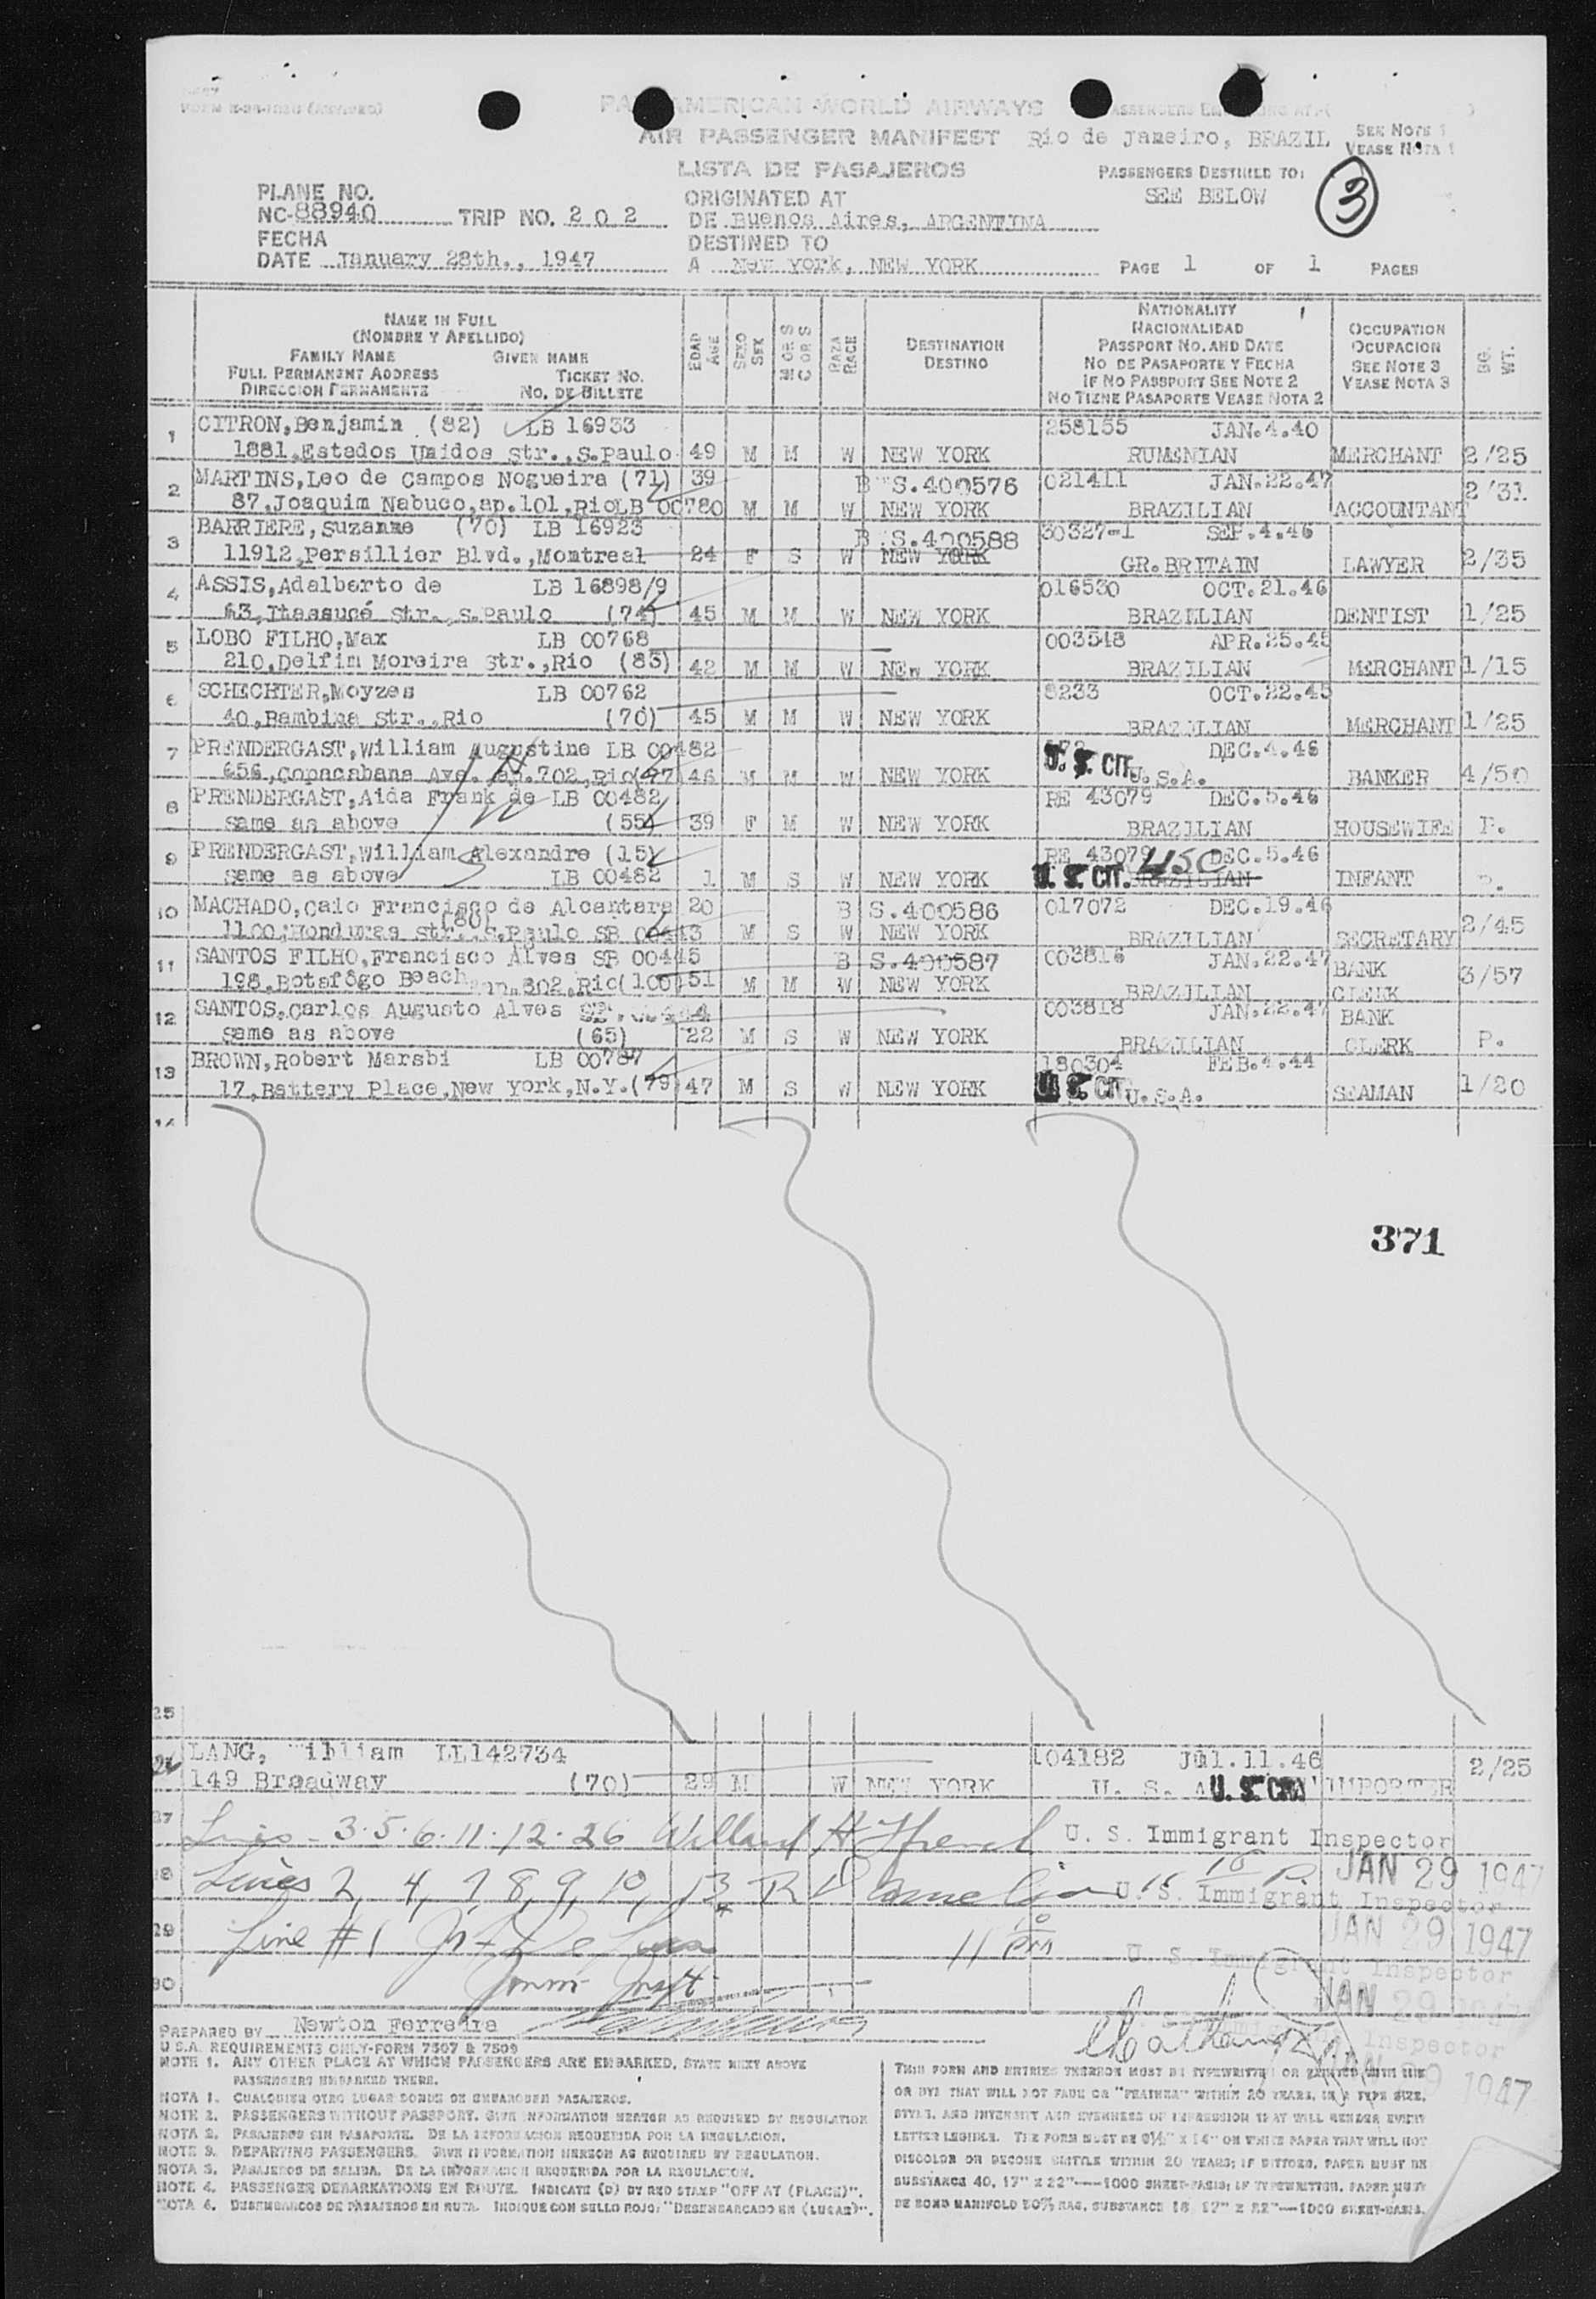 PAN AMERICAN WORLD AIRWAYS
AIR PASSENGER MANIFEST Rio de Janeiro, BRAZIL
SEE NOTE 1
VEASE NOTA 1
LISTA DE PASAJEROS
PASSENGERS DESTINED TO:
SEE BELOW
3
PLANE NO.
NC-88940 TRIP NO. 202
ORIGINATED AT
DE Buenos Aires, ARGENTINA
FECHA
DATE January 28th., 1947
DESTINED TO
A New York, NEW YORK
PAGE 1 OF 1 PAGES
NAME IN FULL
(NOMBRE Y APELLIDO)
FAMILY NAME GIVEN NAME
FULL PERMANENT ADDRESS TICKET NO.
DIRECCION PERMANENTE NO. DE BILLETE
EDAD AGE
SEXO SEX
M OR S
C OR S
RAZA RACE
DESTINATION
DESTINO
NATIONALITY
NACIONALIDAD
PASSPORT NO. AND DATE
NO DE PASAPORTE Y FECHA
IF NO PASSPORT SEE NOTE 2
NO TIENE PASAPORTE VEASE NOTA 2
OCCUPATION
OCUPACION
SEE NOTE 3
VEASE NOTA 3
BG. WT.
1 CITRON, Benjamin (82) LB 16933 258155 JAN.4.40
1881, Estados Unidos Str., S.Paulo 49 M M W NEW YORK RUMENIAN MERCHANT 2/25
2 MARTINS, Leo de Campos Nogueira (71) 39 B S.400576 021411 JAN.22.47
87, Joaquim Nabuco, ap.101, Rio LB 00780 M M W NEW YORK BRAZILIAN ACCOUNTANT 2/31
3 BARRIERE, Suzanne (70) LB 16923 B S.400588 30327-1 SEP.4.46
11912, Persillier Blvd., Montreal 24 F S W NEW YORK GR.BRITAIN LAWYER 2/35
4 ASSIS, Adalberto de LB 16898/9 016530 OCT.21.46
63, Itassucé Str., S.Paulo (74) 45 M M W NEW YORK BRAZILIAN DENTIST 1/25
5 LOBO FILHO, Max LB 00768 003548 APR.25.45
210, Delfim Moreira Str., Rio (83) 42 M M W NEW YORK BRAZILIAN MERCHANT 1/15
6 SCHECHTER, Moyzes LB 00762 8233 OCT.22.45
40, Bambina Str., Rio (70) 45 M M W NEW YORK BRAZILIAN MERCHANT 1/25
7 PRENDERGAST, William Augustine LB 00482 DEC.4.46
656, Copacabana Ave. ap.702, Rio (97) 46 M M W NEW YORK U. S. CIT. U.S.A. BANKER 4/50
8 PRENDERGAST, Aida Frank de LB 00482 RE 43079 DEC.5.46
same as above (55) 39 F M W NEW YORK BRAZILIAN HOUSEWIFE P.
9 PRENDERGAST, William Alexandre (15) RE 43079 USC DEC.5.46
same as above LB 00482 1 M S W NEW YORK U. S. CIT. BRAZILIAN INFANT P.
10 MACHADO, Caio Francisco de Alcantara 20 B S.400586 017072 DEC.19.46
1100, Honduras Str., S.Paulo (80) SB 00443 M S W NEW YORK BRAZILIAN SECRETARY 2/45
11 SANTOS FILHO, Francisco Alves SB 00445 B S.400587 003816 JAN.22.47 BANK
198, Botafôgo Beach 802, Rio (100) 51 M M W NEW YORK BRAZILIAN CLERK 3/57
12 SANTOS, Carlos Augusto Alves 003818 JAN.22.47 BANK
same as above (65) 22 M S W NEW YORK BRAZILIAN CLERK P.
13 BROWN, Robert Marsbi LB 00787 180304 FEB.4.44
17, Battery Place, New York, N.Y. (79) 47 M S W NEW YORK U. S. CIT. U.S.A. SEAMAN 1/20
14
371
25
26 LANG, William LL142734 104182 Jul.11.46 2/25
149 Broadway (70) 29 M W NEW YORK U. S. A U. S. CIT. IMPORTER
27 Lines - 3.5.6.11.12.26 Willard H French U. S. Immigrant Inspector
JAN 29 1947
28 Lines 2, 4, 7, 8, 9, 10, 13 U. S. Immigrant Inspector
JAN 29 1947
29 Line #1 11 PM U. S. Immigrant Inspector
30 JAN 29 1947
Immigrant Inspector
JAN 29 1947
PREPARED BY Newton Ferreira
U S.A. REQUIREMENTS ONLY-FORM 7507 & 7509
NOTE 1. ANY OTHER PLACE AT WHICH PASSENGERS ARE EMBARKED, STATE NEXT ABOVE
PASSENGERS EMBARKED THERE.
NOTA 1. CUALQUIER OTRO LUGAR DONDE SE EMBARQUEN PASAJEROS.
NOTE 2. PASSENGERS WITHOUT PASSPORT. GIVE INFORMATION HEREON AS REQUIRED BY REGULATION
NOTA 2. PASAJEROS SIN PASAPORTE. DE LA INFORMACION REQUERIDA POR LA REGULACION.
NOTE 3. DEPARTING PASSENGERS. GIVE INFORMATION HEREON AS REQUIRED BY REGULATION.
NOTA 3. PASAJEROS DE SALIDA. DE LA INFORMACION REQUERIDA POR LA REGULACION.
NOTE 4. PASSENGER DEBARKATIONS EN ROUTE. INDICATE (D) BY RED STAMP "OFF AT (PLACE)".
NOTA 4. DESEMBARCOS DE PASAJEROS EN RUTA. INDIQUE CON SELLO ROJO: "DESEMBARCADO EN (LUGAR)".
THIS FORM AND ENTRIES THEREON MUST BE TYPEWRITTEN OR PRINTED WITH INK
OR DYE THAT WILL NOT FADE OR "FEATHER" WITHIN 20 YEARS, IN A TYPE SIZE,
STYLE, AND INTENSITY AND EVENNESS OF IMPRESSION THAT WILL RENDER EVERY
LETTER LEGIBLE. THE FORM MUST BE 8½" X 14" ON WHITE PAPER THAT WILL NOT
DISCOLOR OR BECOME BRITTLE WITHIN 20 YEARS; IF DITTOED, PAPER MUST BE
SUBSTANCE 40, 17" X 22"—1000 SHEET-BASIS; IF TYPEWRITTEN, PAPER MUST
BE BOND MANIFOLD 50% RAG, SUBSTANCE 18 17" X 22"—1000 SHEET-BASIS.